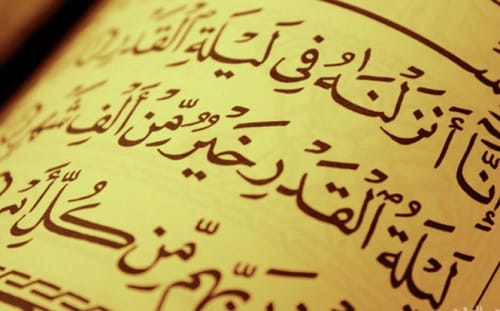 إِنَّا أَنزَلْنَٰهُ فِى لَيْلَةِ ٱلْقَدْرِ
لَيْلَةُ ٱلْقَدْرِ خَيْرٌ مِّنْ أَلْفِ شَهْرٍ
رَبِّهِم مِّن كُلِّ